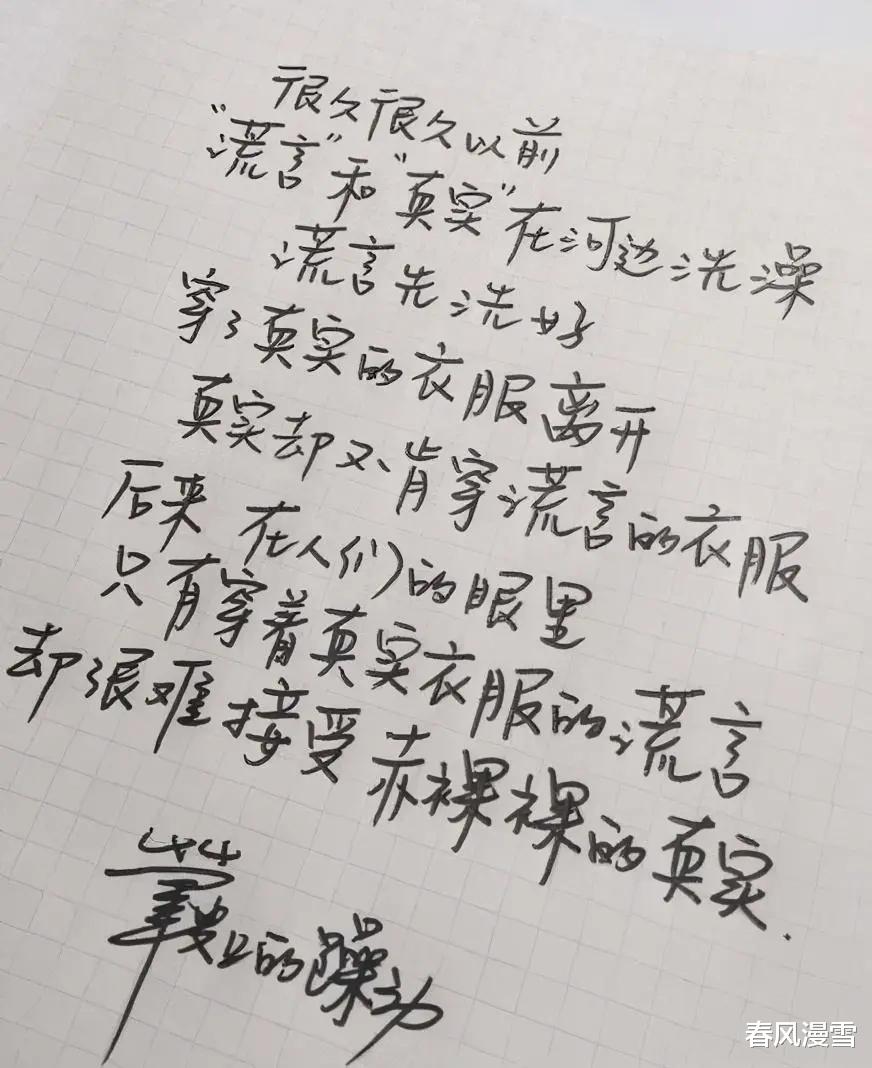 很久很久以前
“谎言”和“真实”在河边洗澡
谎言先洗好
穿了真实的衣服离开
真实却不肯穿谎言的衣服
后来 在人们的眼里
只有穿着真实衣服的谎言
却很难接受赤裸裸的真实.
的躁动
春风漫雪